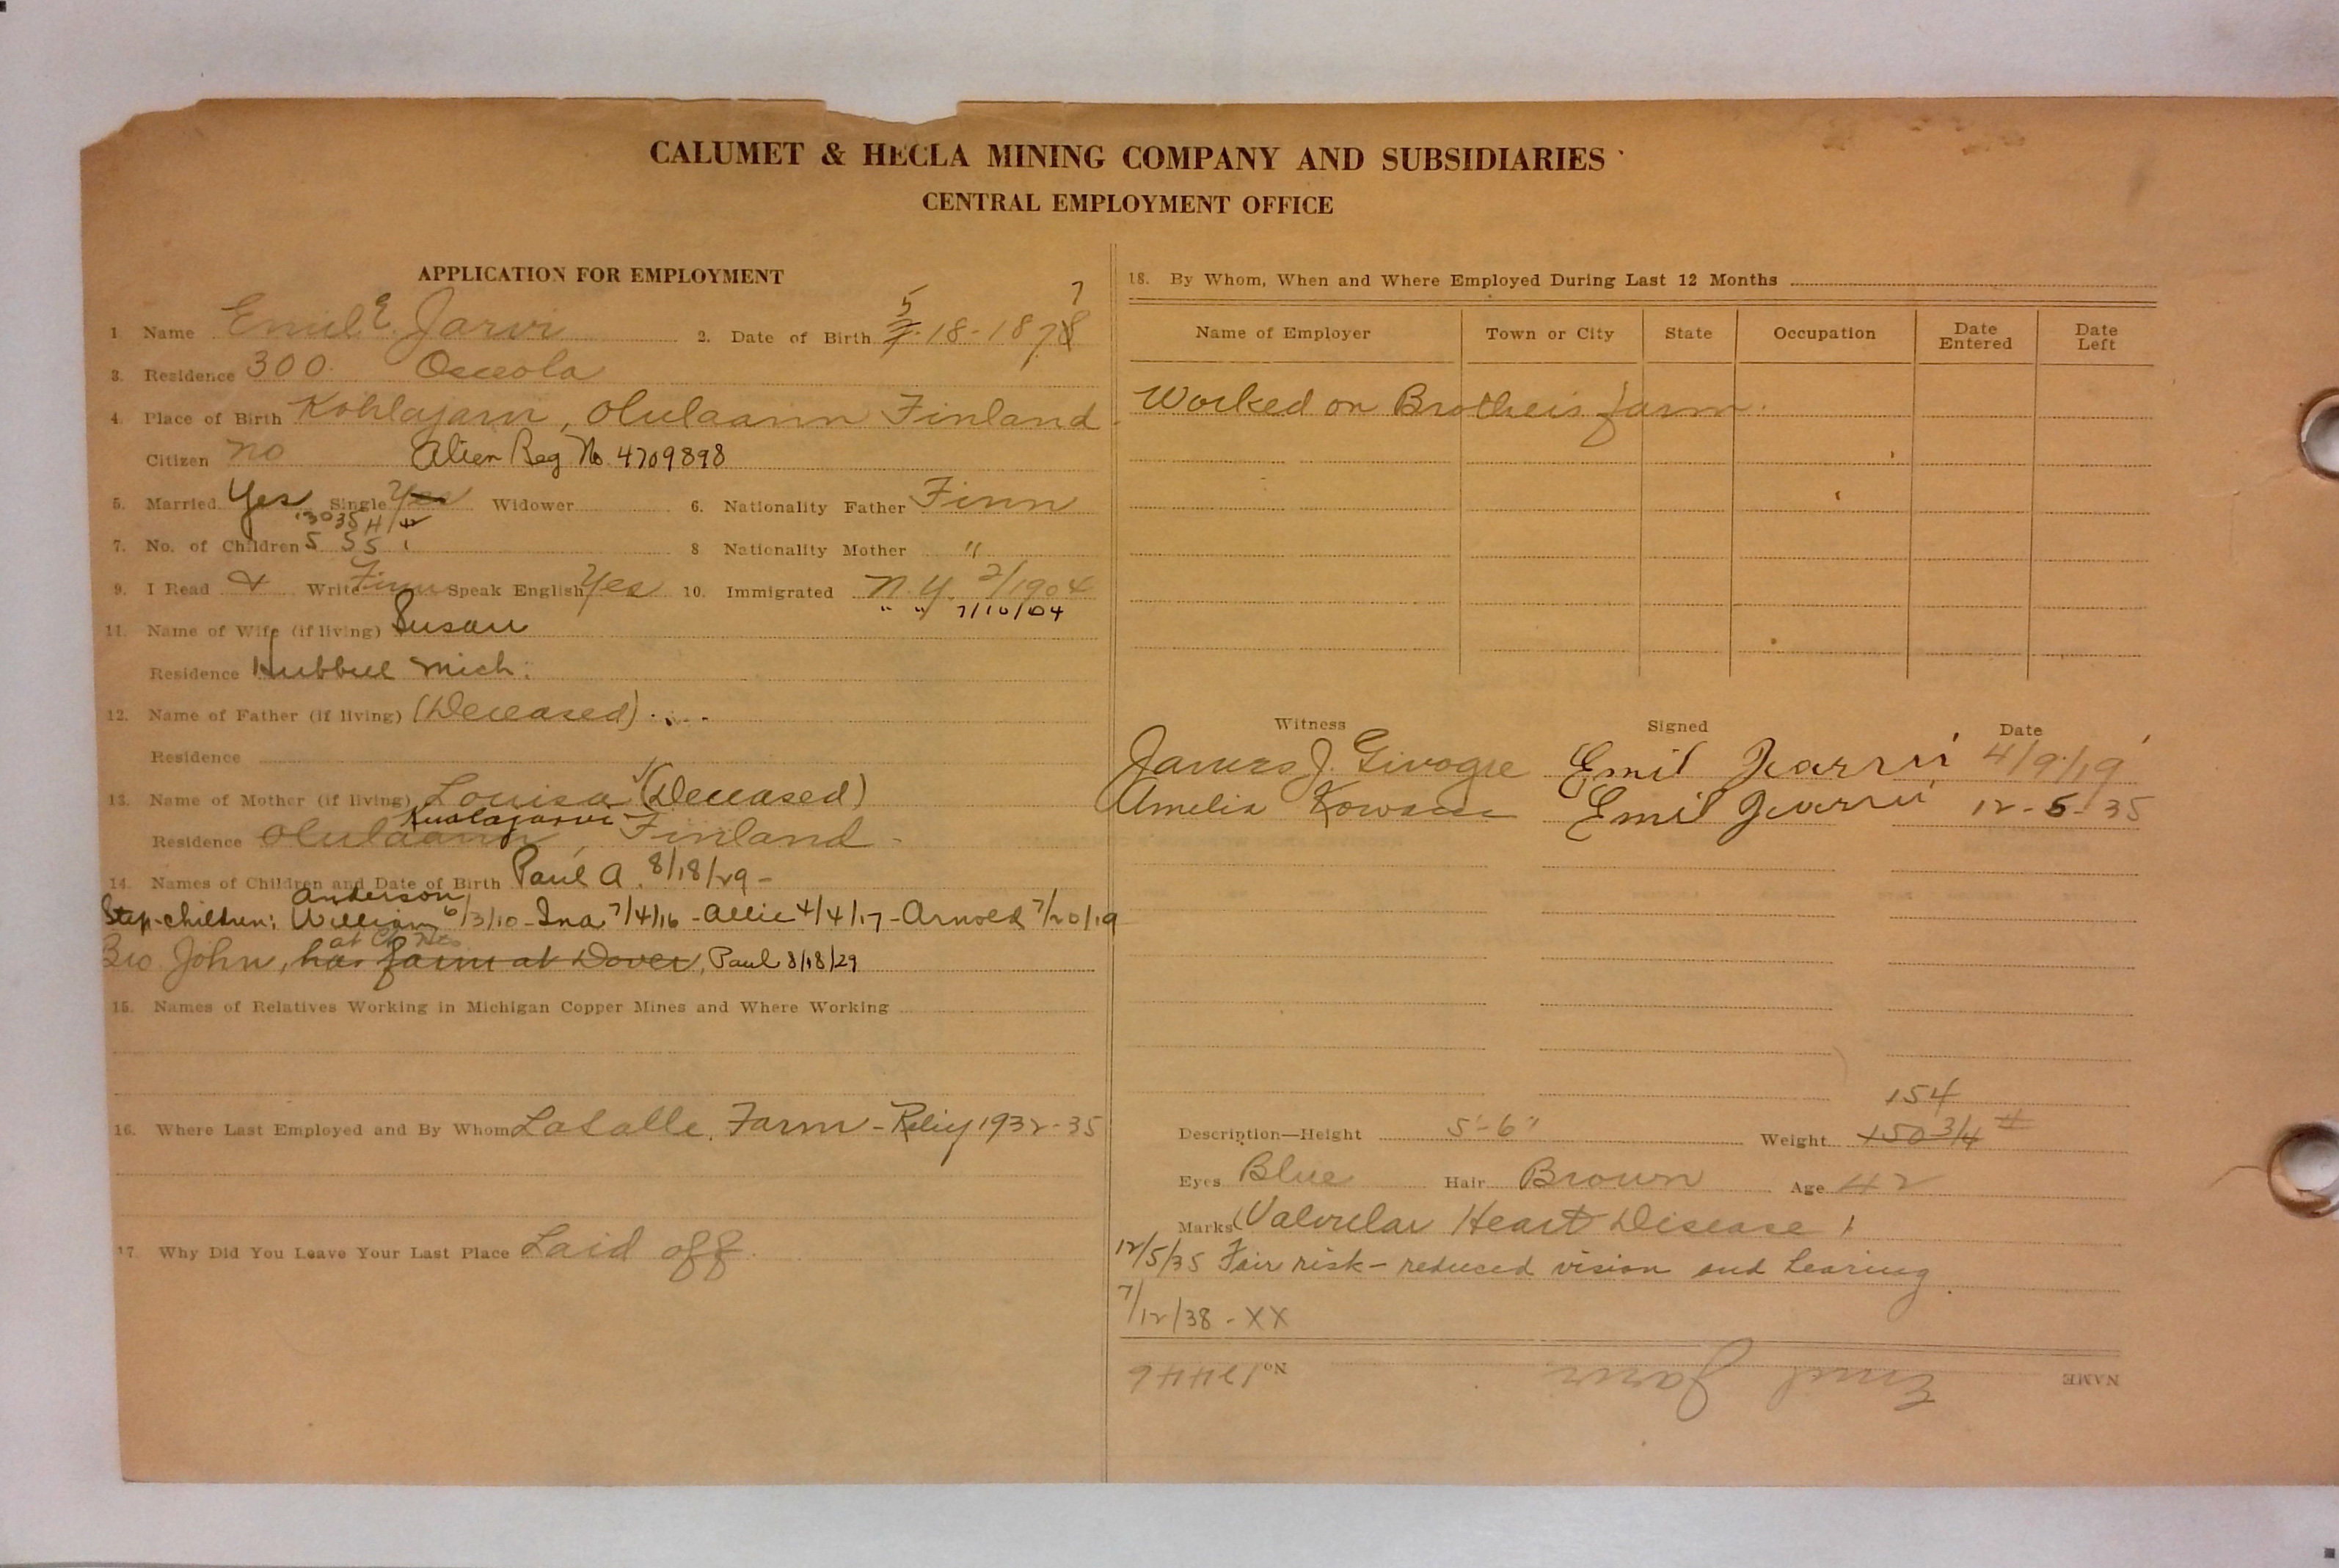 CALUMET & HECLA MINING COMPANY AND SUBSIDIARIES
CENTRAL EMPLOYMENT OFFICE
APPLICATION FOR EMPLOYMENT
1 Name Emil E. Jarvi 2. Date of Birth 7 5-18-1878 7
3. Residence 300 Osceola
4. Place of Birth Kohlajarn, Olulaann Finland
Citizen no Alien Reg No. 4709898
5. Married Yes Single Yes Widower 6. Nationality Father Finn
'30 35 H
7. No. of Children 5 5 5 1 8 Nationality Mother "
9. I Read & Write Finn Speak English Yes 10. Immigrated N.Y. 2/1904
" " 7/10/04
11. Name of Wife (if living) Susan
Residence Hubbell Mich.
12. Name of Father (if living) (Deceased)
Residence
13. Name of Mother (if living) Louisa (Deceased)
Kuolajarvi
Residence Olulaann, Finland
14. Names of Children and Date of Birth Paul A. 8/18/29 -
Anderson
Step-children: William 6/3/10 - Ina 7/4/16 - Allie 4/4/17 - Arnold 7/20/19
Bro John, has farm at Dover, Paul 8/18/29
15. Names of Relatives Working in Michigan Copper Mines and Where Working
16. Where Last Employed and By Whom LaSalle, Farm - Relief 1932-35
17. Why Did You Leave Your Last Place Laid off
18. By Whom, When and Where Employed During Last 12 Months
Name of Employer Town or City State Occupation Date Entered Date Left
Worked on Brothers farm.
Witness Signed Date
James J. Emil Jarvi 4/9/19
Amelia Emil Jarvi 12-5-35
154
Description—Height 5'-6" Weight 150 3/4 #
Eyes Blue Hair Brown Age 42
Marks (Valvular Heart Disease)
12/5/35 Fair risk - reduced vision and hearing
7/12/38 - XX
NAME Emil Jarvi No. 12446